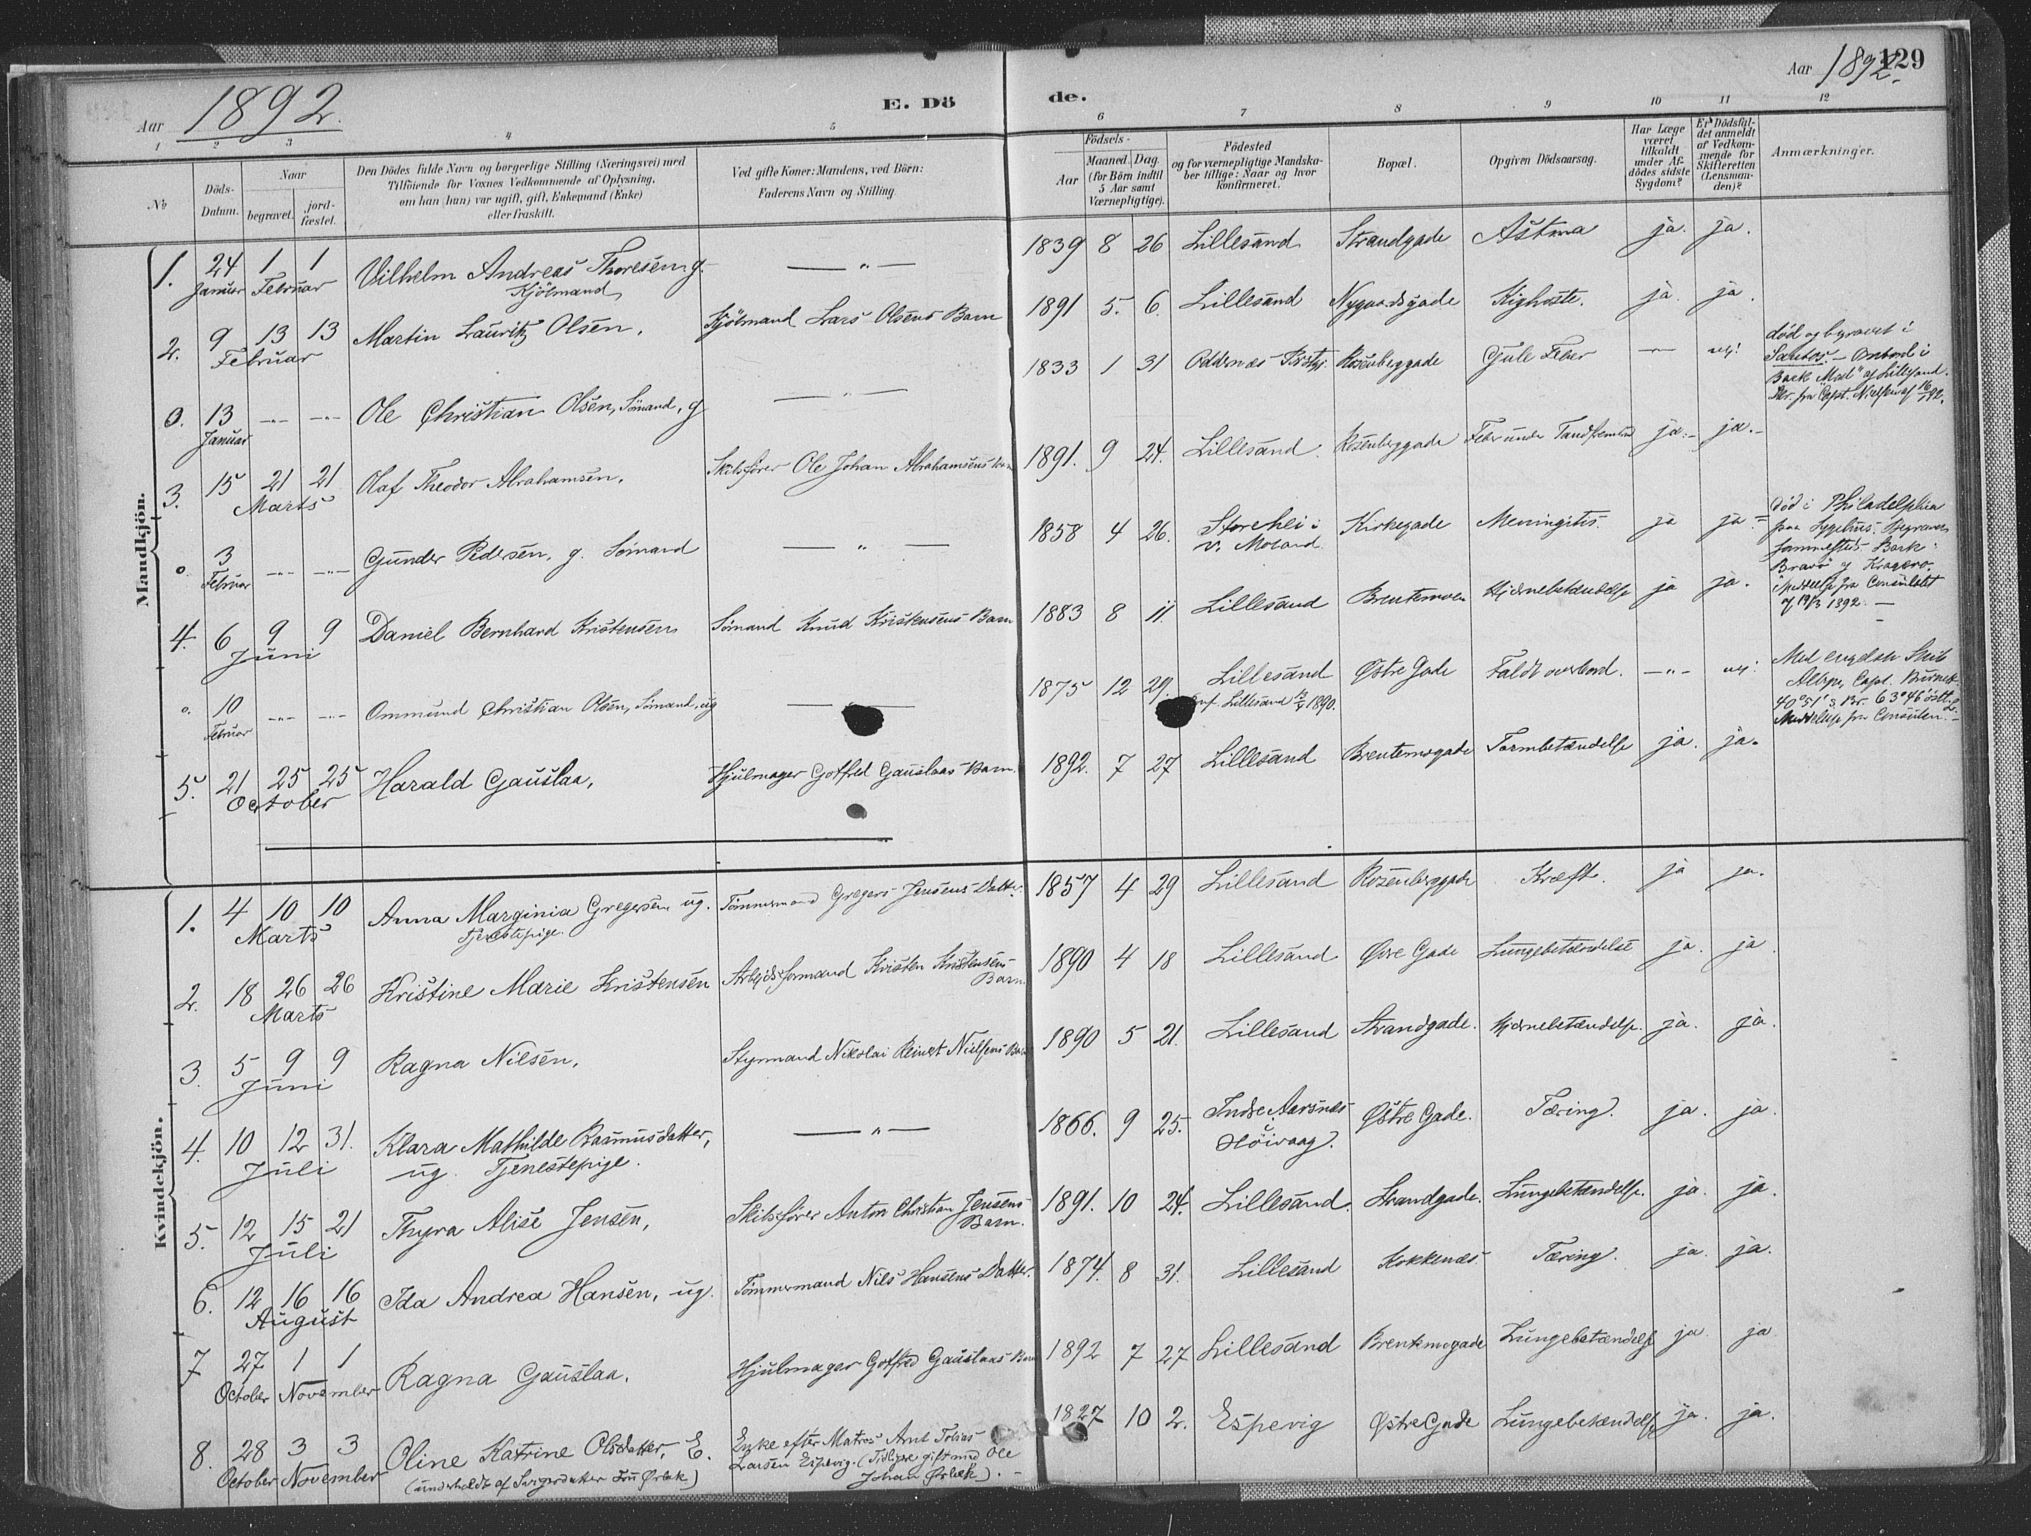 Aar 1892.
E. Döde.
Aar 1892. 129
1 2 3 4 5 6 7 8 9 10 11 12
No
Döds-Datum.
Naar
begravet.
jord-fæstet.
Den Dödes fulde Navn og borgerlige Stilling (Næringsvei) med
Tilföiende for Voxnes Vedkommende af Oplysning,
om han (hun) var ugift, gift, Enkemand (Enke)
eller fraskilt.
Ved gifte Koner: Mandens, ved Börn:
Faderens Navn og Stilling
Födsels-
Aar
Maaned. Dag.
(for Börn indtil
5 Aar samt
Værnepligtige).
Födested
og for værnepligtige Mandska-
ber tillige: Naar og hvor
konfirmeret.
Bopæl.
Opgiven Dödsaarsag.
Har Læge
været
tilkaldt
under Af-
dödes sidste
Sygdom?
Er Dödsfal-
det anmeldt
af Vedkom-
mende for
Skifteretten
(Lensman-
den)?
Anmærkninger.
Mandkjön.
1. 24 Januar 1 1 Februar Vilhelm Andreas Thoresen g. Kjölmand — " — 1839 8 26 Lillesand Strandgade Astma ja. ja.
2. 9 13 13 Februar Martin Lauritz Olsen, Kjölmand Lars Olsens Barn 1891 5. 6. Lillesand Nygaardsgade Kighoste. ja. ja.
0. 13 Januar -"- -"- Ole Christian Olsen, Sömand, g — " — 1833 1 31 Oddernes Kristss. Rosenberggade Gule Feber — nej. död og begravet i
Santos. — Ombord i
Bark "Mod" af Lillesand.
fra Capt. Nielsen af 16/1 92.
3. 15 21 21 Marts Olaf Theodor Abrahamsen, Skibsförer Ole Johan Abrahamsens Barn 1891. 9 24. Lillesand. Rosenberggade Feber under Tandfrembrud ja. — ja. —
0. 3 Februar -"- -"- Gunder Pedersen, g. Sömand — " — 1858 4 26. Storehei i V. Moland. Kirkegade Meningitis. ja ja — Död i Philadelphia
paa Sygehus. Begraven
sammesteds. Bark
Bravo af Kragerö.
Meddelelse fra Consulatet
af 19/3 1892. —
4. 6 9 9 Juni Daniel Bernhard Kristensen Sömand Knud Kristensens Barn 1883 8 11. Lillesand Brentemoen Hjernebetændelse ja ja. —
0. 10 Februar -"- -"- Ommund Christian Olsen, Sömand, ug — 1875 12 29. Lillesand Konf. Lillesand 1890. Østre Gade Faldt overbord. -"- nej. Med engelsk Skib
Capt. Burnet
40°51' s. Br. 63°46' östl. L.
Meddelelse fra Consulen. —
5. 21 25 25 October Harald Gauslaa, Hjulmager Gotfred Gauslaas Barn. 1892. 7 27 Lillesand Brentemogade Tarmbetændelse ja. ja.
Kvindekjön.
1. 4 10 10 Marts Anna Marginia Gregersen, ug. Tjenestepige. Tömmermand Gregers Jensens Datter. 1857 4 29 Lillesand Rosenberggade Kræft. ja ja.
2. 18 26 26 Marts Kristine Marie Kristensen Arbeidsformand Kristen Kristensens Barn 1890 4 18 Lillesand Øvre Gade Lungebetændelse ja. ja
3. 5 9 9 Juni Ragna Nilsen, Styrmand Nikolai Reinert Nielsens Barn 1890 5 21. Lillesand Strandgade. Hjernebetændelse. ja. ja.
4. 10 12 31. Juli Klara Mathilde Rasmusdatter, ug. Tjenestepige. — " — 1866. 9 25. Indre Aarsnes Höivaag. Østre Gade. Tæring. ja. ja.
5. 12 15 21 Juli Thyra Alise Jensen, Skibsförer Anton Christian Jensens Barn. 1891. 10 24. Lillesand. Strandgade. Lungebetændelse. ja. ja.
6. 12 16 16 August Ida Andrea Hansen, ug. Tömmermand Nils Hansens Datter. 1874. 8 31. Lillesand Kokkenes. Tæring. ja. ja.
7 27 October 1 1 November Ragna Gauslaa. Hjulmager Gotfred Gauslaas Barn 1892 7 27 Lillesand Brentemogade Lungebetændelse ja. ja
8. 28 October 3 3 November Oline Katrine Olsdatter, E. (underholdt af Svigerdatter Fru Ørbek) Enke efter Matros Arnt Tobias
Larsen Espevig. (Tidligere gift med Ole
Johan Ørbek). — 1827 10 2. Espevig Østre Gade Lungebetændelse ja. ja.